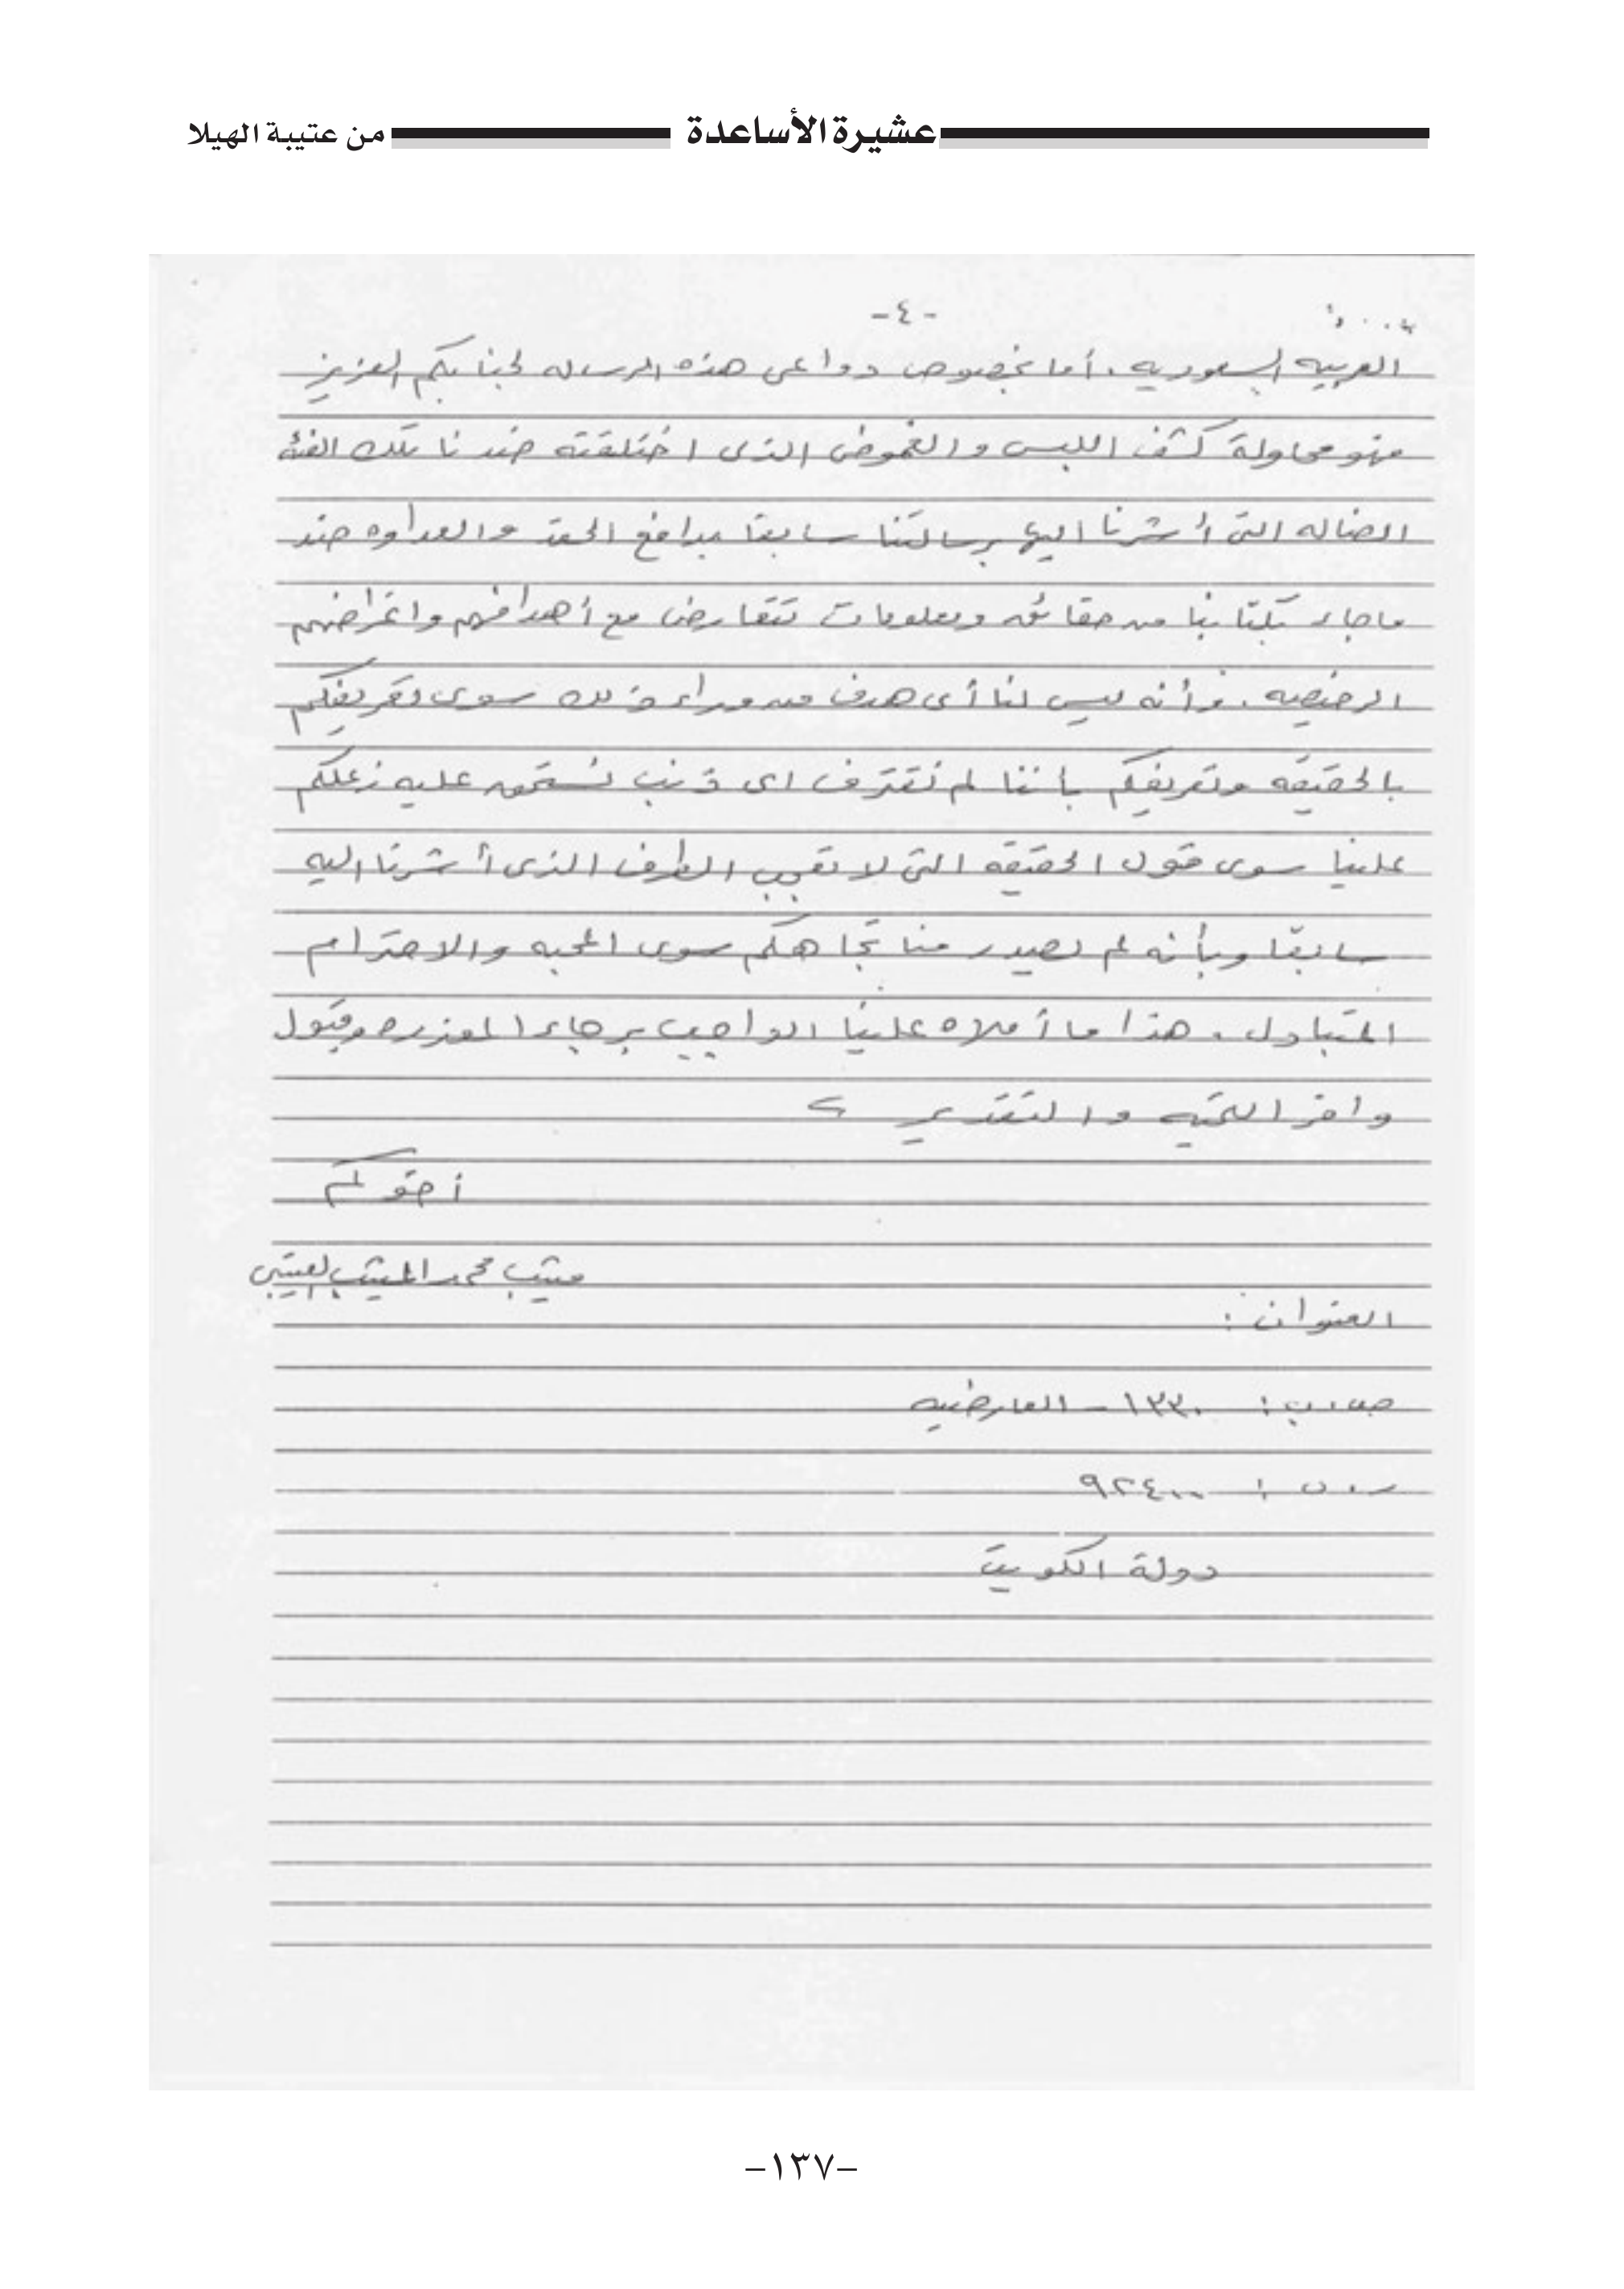 عشيرة الأساعدة من عتيبة الهيلا
-٤-
العربيه السعوديه . أما بخصوص دواعى هذه الرساله لجنابكم العزيز
فهو محاولة كشف اللبس والغموض الذى اختلقته ضدنا تلك الفئة
الضاله التى أشرنا اليها برسالتنا سابقا بدافع الحقد والعداوه ضد
ماجاء بكتابنا من حقائق ومعلومات تتعارض مع أهدافهم واغراضهم
الرخيصه . وأنه ليس لنا أى هدف من وراء ذلك سوى تعريفكم
بالحقيقه وتعريفكم بأننا لم نقترف اى ذنب نستحق عليه زعلكم
علينا سوى قول الحقيقه التى لا تعجب الطرف الذى أشرنا اليه
سابقا وبأنه لم يصدر منا تجاهكم سوى المحبه والاحترام
المتبادل . هذا ما أملاه علينا الواجب برجاء المعذره وقبول
وافر التحيه والتقدير
أخوكم
متيب محمد المتيب العتيبي
العنوان :
ص.ب : ١٣٣٠ - العارضيه
ر.ب : ٩٢٤٠٠
دولة الكويت
-١٣٧-